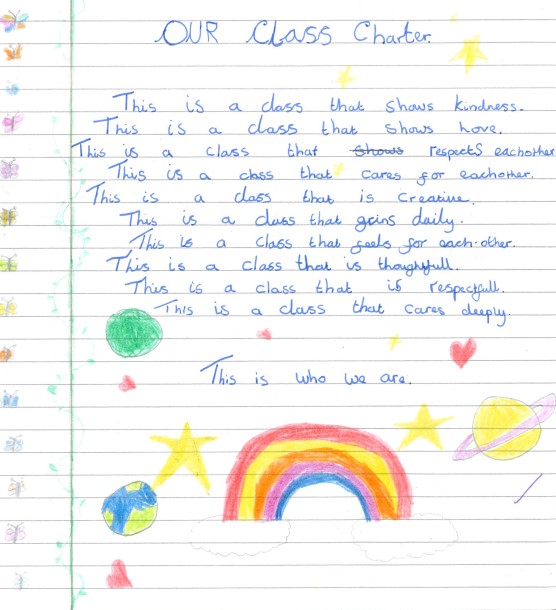 OUR Class Charter.
This is a class that shows kindness.
This is a class that shows Love.
This is a class that shows respects eachother
This is a class that cares for eachother.
This is a class that is Creative.
This is a class that grins daily.
This is a class that feels for each other.
This is a class that is thoughtfull.
This is a class that is respectfull.
This is a class that cares deeply.
This is who we are.